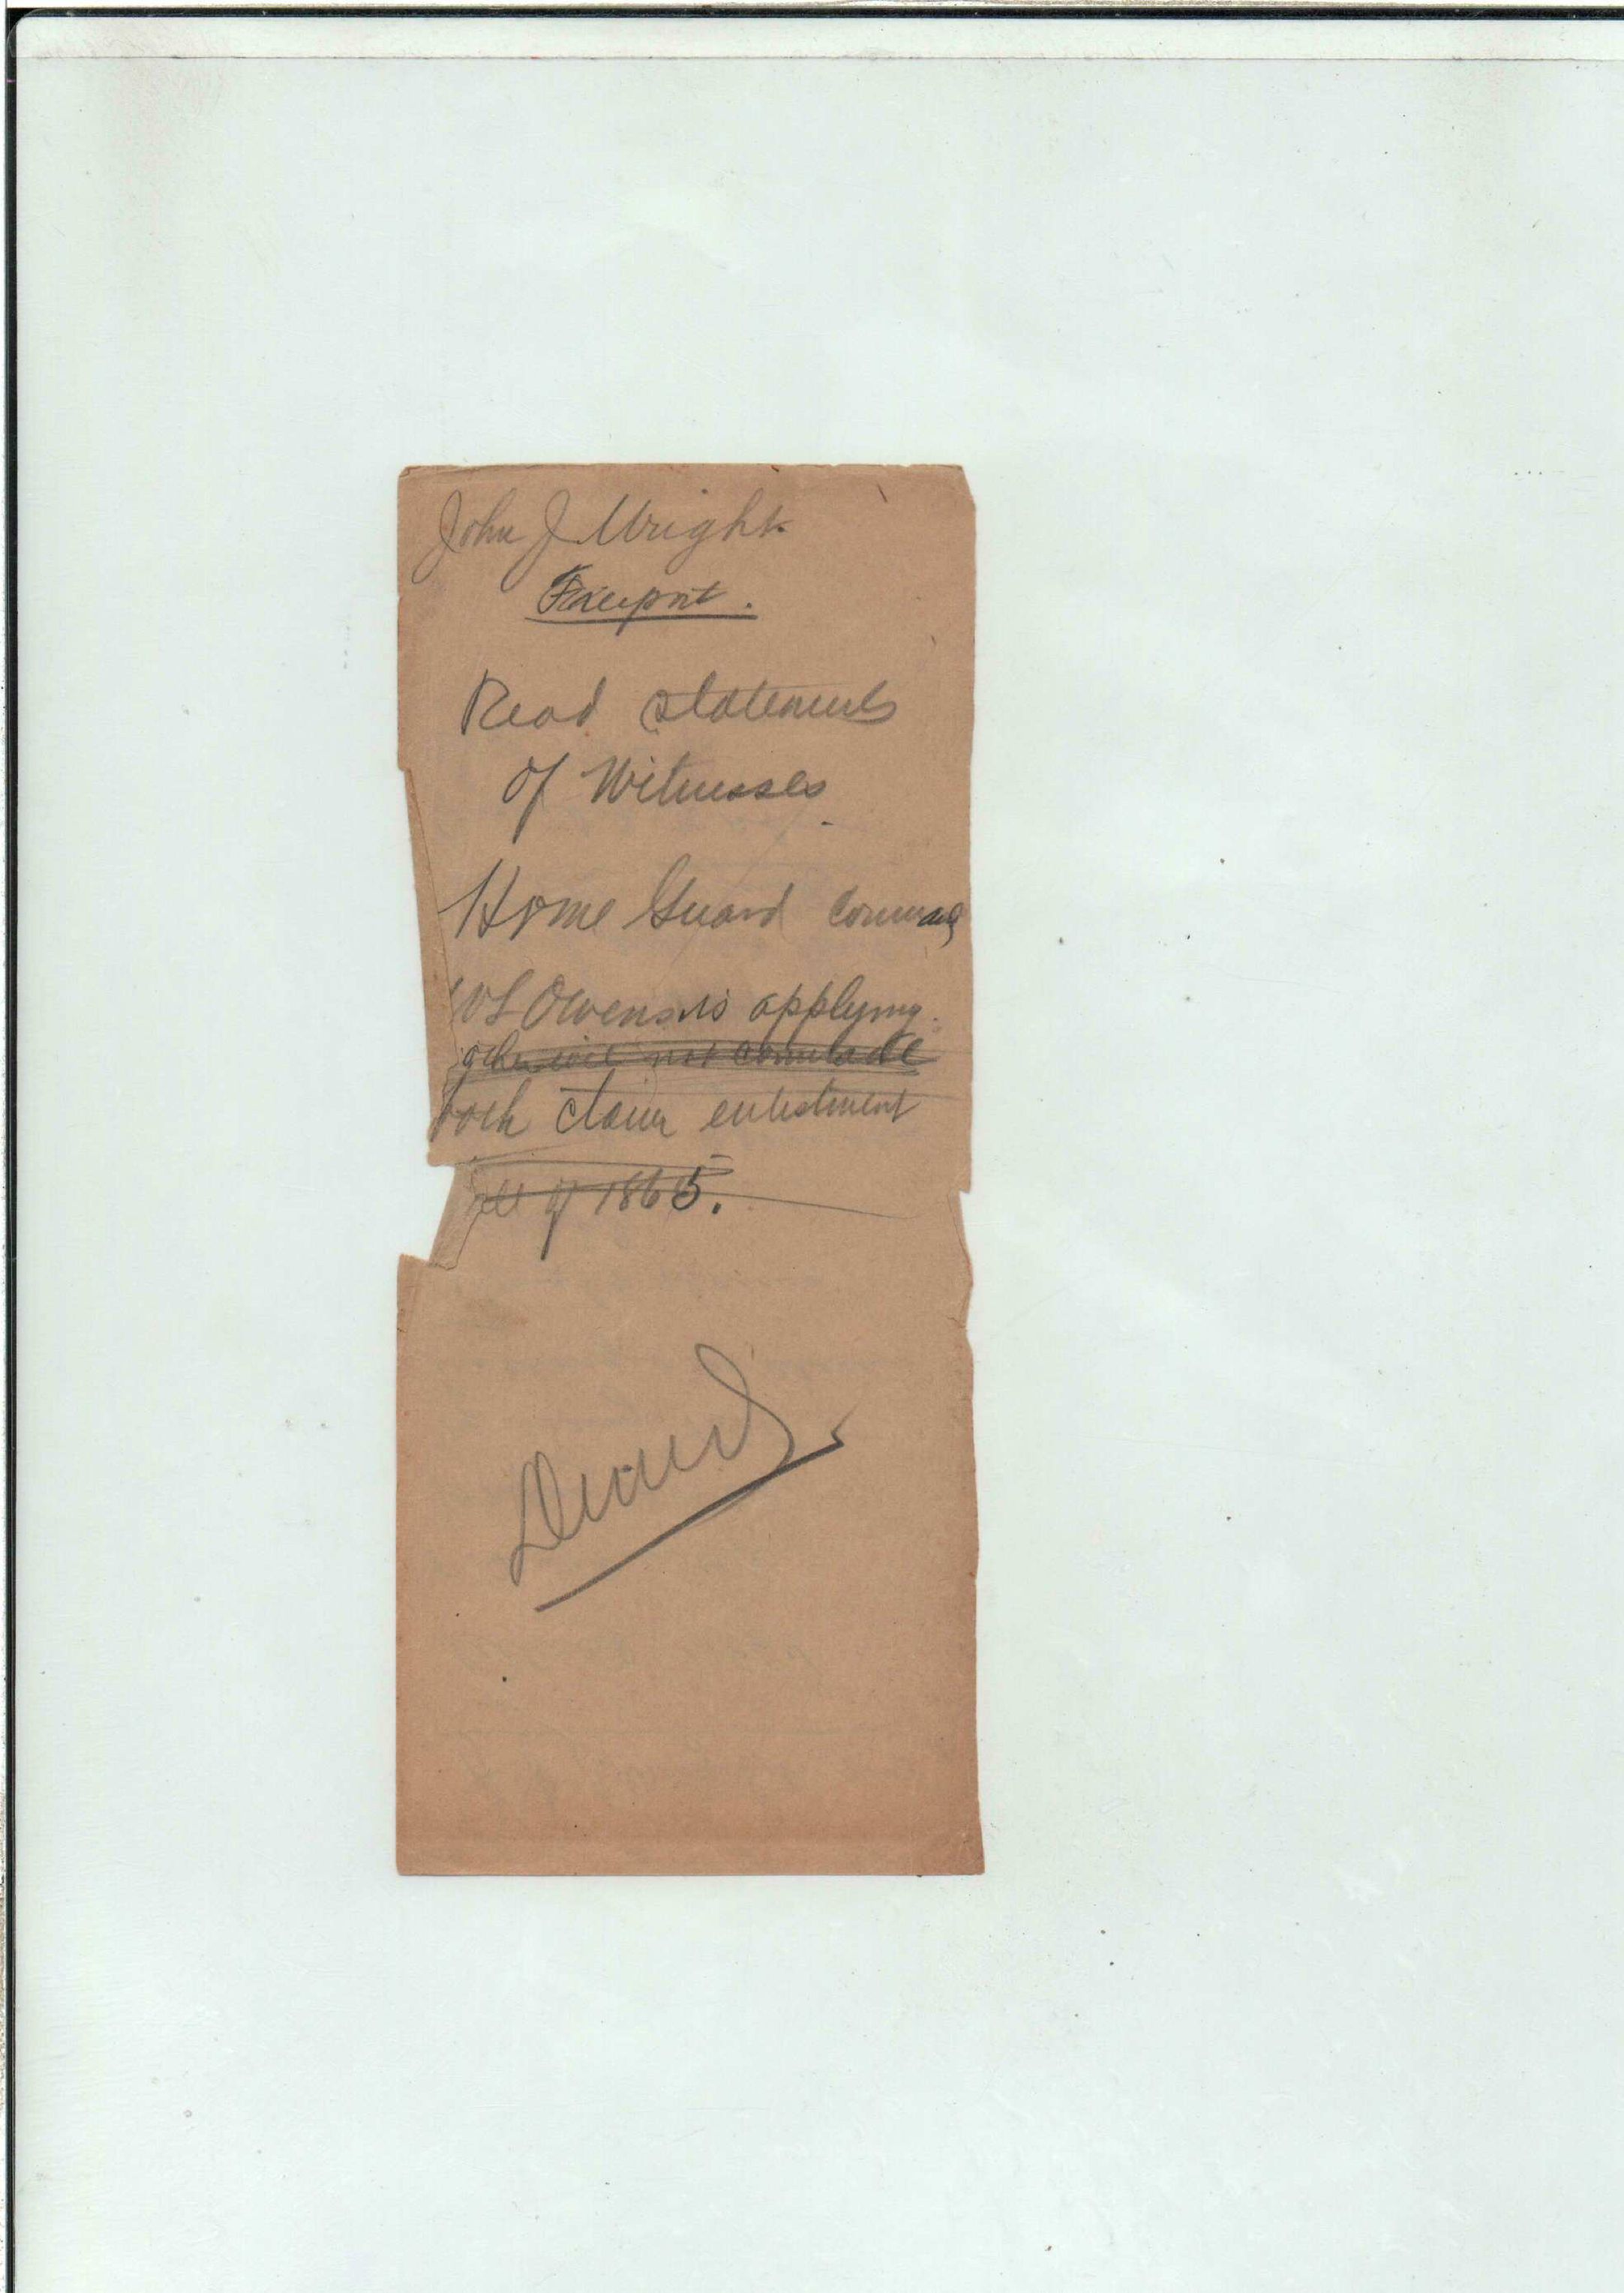 John J Wright
Freeport.
Read statements
of Witnesses
Home Guard Company
WL Owens is applying
not comrade
both claim enlistment
of 1865.